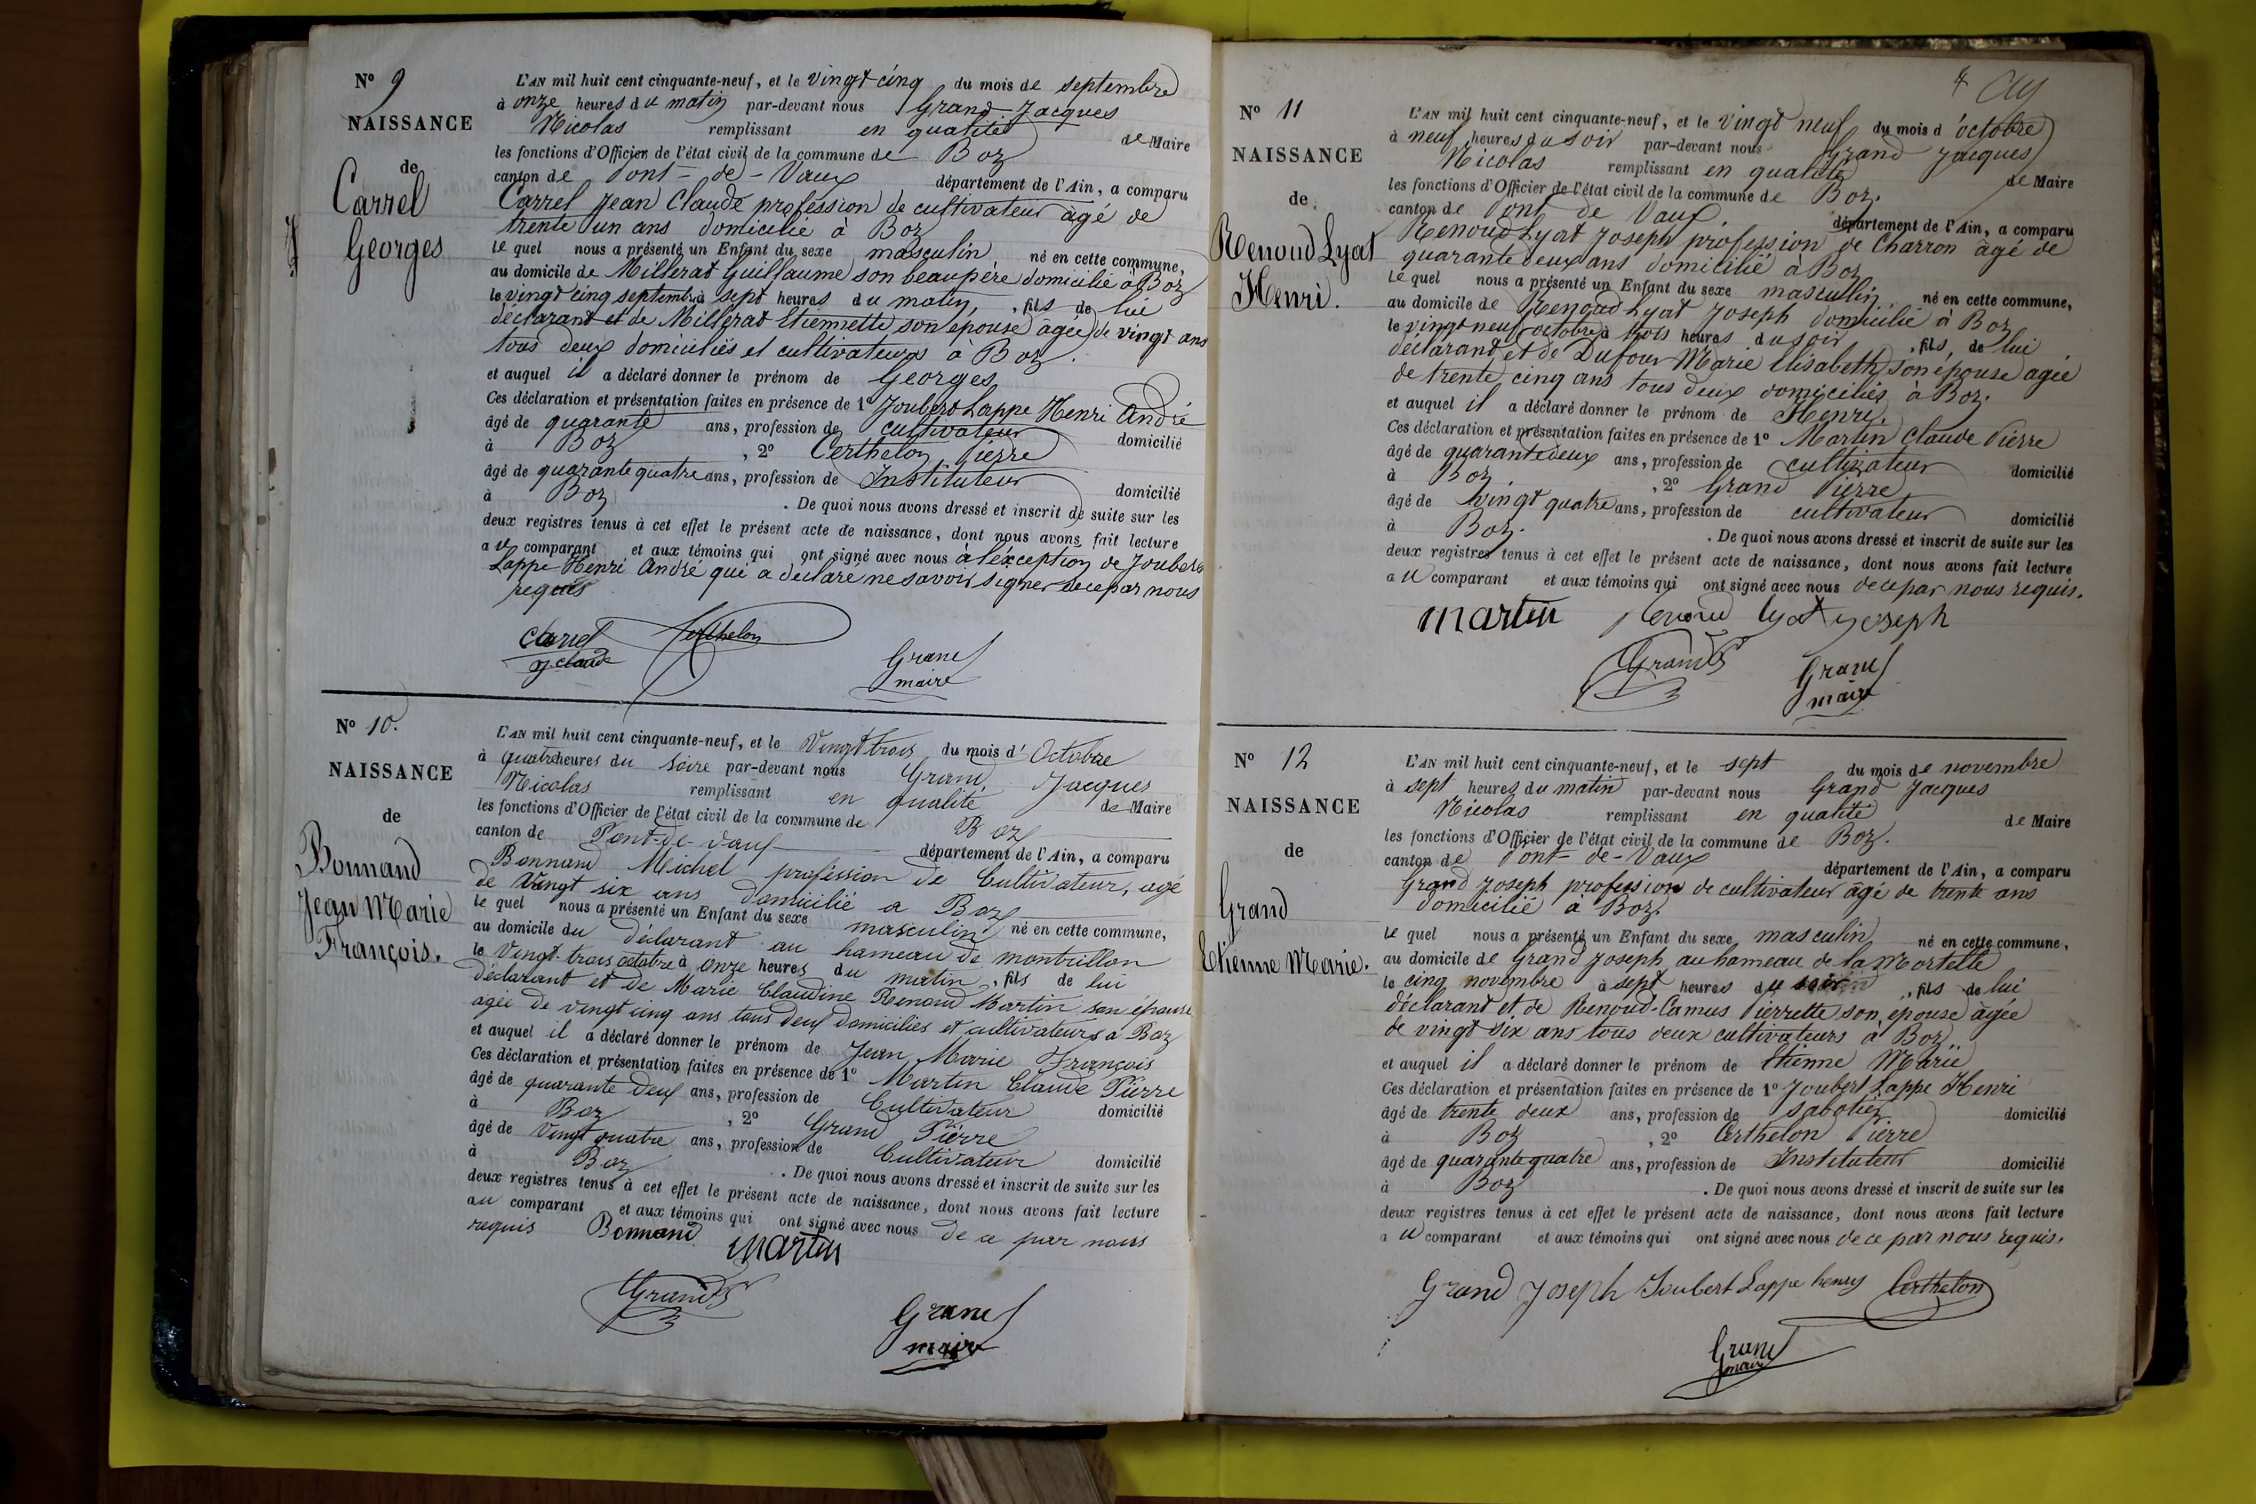 Nº 9
NAISSANCE
de
Carrel
Georges
L'AN mil huit cent cinquante-neuf, et le vingt cinq du mois de septembre
à onze heures du matin par-devant nous Grand Jacques
Nicolas remplissant en qualité de Maire
les fonctions d'Officier de l'état civil de la commune de Boz
canton de Pont-de-Vaux département de l'Ain, a comparu
Carrel Jean Claude profession de cultivateur âgé de
trente un ans domicilié à Boz
lequel nous a présenté un Enfant du sexe masculin né en cette commune,
au domicile de Millerat Guillaume son beaupère domicilié à Boz
le vingt cinq septembre à sept heures du matin, fils de lui
déclarant et de Millerat Etiennette son épouse âgée de vingt ans
tous deux domiciliés et cultivateurs à Boz.
et auquel il a déclaré donner le prénom de Georges
Ces déclaration et présentation faites en présence de 1º Joubert Lappe Henri André
âgé de quarante ans, profession de cultivateur domicilié
à Boz, 2º Certhelon Pierre
âgé de quarante quatre ans, profession de Instituteur domicilié
à Boz. De quoi nous avons dressé et inscrit de suite sur les
deux registres tenus à cet effet le présent acte de naissance, dont nous avons fait lecture
au comparant et aux témoins qui ont signé avec nous à l'éxception de Joubert
Lappe Henri André qui a déclaré ne savoir signer de ce par nous
requis
Carrel Certhelon
J. Claude
Grand
maire
Nº 10.
NAISSANCE
de
Bonnand
Jean Marie
François.
L'AN mil huit cent cinquante-neuf, et le Vingt trois du mois d'Octobre
à quatre heures du soire par-devant nous Grand Jacques
Nicolas remplissant en qualité de Maire
les fonctions d'Officier de l'état civil de la commune de Boz
canton de Pont-de-Vaux département de l'Ain, a comparu
Bonnand Michel profession de Cultivateur, agé
de Vingt six ans domicilié a Boz
lequel nous a présenté un Enfant du sexe masculin né en cette commune,
au domicile du déclarant au hameau de montrillon
le Vingt-trois octobre à onze heures du matin, fils de lui
déclarant et de Marie Claudine Renoud Martin son épouse
agée de vingt cinq ans tous deux domiciliés et cultivateurs a Boz
et auquel il a déclaré donner le prénom de Jean Marie François
Ces déclaration et présentation faites en présence de 1º Martin Claude Pierre
âgé de quarante deux ans, profession de Cultivateur domicilié
à Boz, 2º Grand Pierre
âgé de Vingt quatre ans, profession de Cultivateur domicilié
à Boz. De quoi nous avons dressé et inscrit de suite sur les
deux registres tenus à cet effet le présent acte de naissance, dont nous avons fait lecture
au comparant et aux témoins qui ont signé avec nous de ce par nous
requis Bonnand martin
Grand
Grand
maire
4
Nº 11
NAISSANCE
de
Renoud Lyat
Henri.
L'AN mil huit cent cinquante-neuf, et le vingt neuf du mois d'octobre
à neuf heures du soir par-devant nous Grand Jacques
Nicolas remplissant en qualité de Maire
les fonctions d'Officier de l'état civil de la commune de Boz.
canton de Pont de Vaux. département de l'Ain, a comparu
Renoud Lyat Joseph profession de Charron âgé de
quarante deux ans domicilié à Boz
lequel nous a présenté un Enfant du sexe masculin, né en cette commune,
au domicile de Renoud Lyat Joseph domicilié à Boz
le vingt neuf octobre à trois heures du soir, fils de lui
déclarant et de Dufour Marie Elisabeth son épouse agée
de trente cinq ans tous deux domiciliés à Boz.
et auquel il a déclaré donner le prénom de Henri.
Ces déclaration et présentation faites en présence de 1º Martin Claude Pierre
âgé de quarante deux ans, profession de cultivateur domicilié
à Boz, 2º Grand Pierre
âgé de vingt quatre ans, profession de cultivateur domicilié
à Boz. De quoi nous avons dressé et inscrit de suite sur les
deux registres tenus à cet effet le présent acte de naissance, dont nous avons fait lecture
au comparant et aux témoins qui ont signé avec nous de ce par nous requis.
martin Renoud lyat joseph
Grand
Grand
maire
Nº 12
NAISSANCE
de
Grand
Etienne Marie.
L'AN mil huit cent cinquante-neuf, et le sept du mois de novembre
à sept heures du matin par-devant nous Grand Jacques
Nicolas remplissant en qualité de Maire
les fonctions d'Officier de l'état civil de la commune de Boz.
canton de Pont-de-Vaux département de l'Ain, a comparu
Grand Joseph profession de cultivateur âgé de trente ans
domicilié à Boz.
lequel nous a présenté un Enfant du sexe masculin né en cette commune,
au domicile de Grand Joseph au hameau de la Mortelle
le cinq novembre à sept heures du, fils de lui
déclarant et de Renoud-Camus Pierrette son épouse âgée
de vingt six ans tous deux cultivateurs à Boz
et auquel il a déclaré donner le prénom de Etienne Marie
Ces déclaration et présentation faites en présence de 1º Joubert Lappe Henri
âgé de trente deux ans, profession de sabotier domicilié
à Boz, 2º Certhelon Pierre
âgé de quarante quatre ans, profession de Instituteur domicilié
à Boz. De quoi nous avons dressé et inscrit de suite sur les
deux registres tenus à cet effet le présent acte de naissance, dont nous avons fait lecture
au comparant et aux témoins qui ont signé avec nous de ce par nous requis.
Grand Joseph Joubert Lappe henry Certhelon
Grand
maire